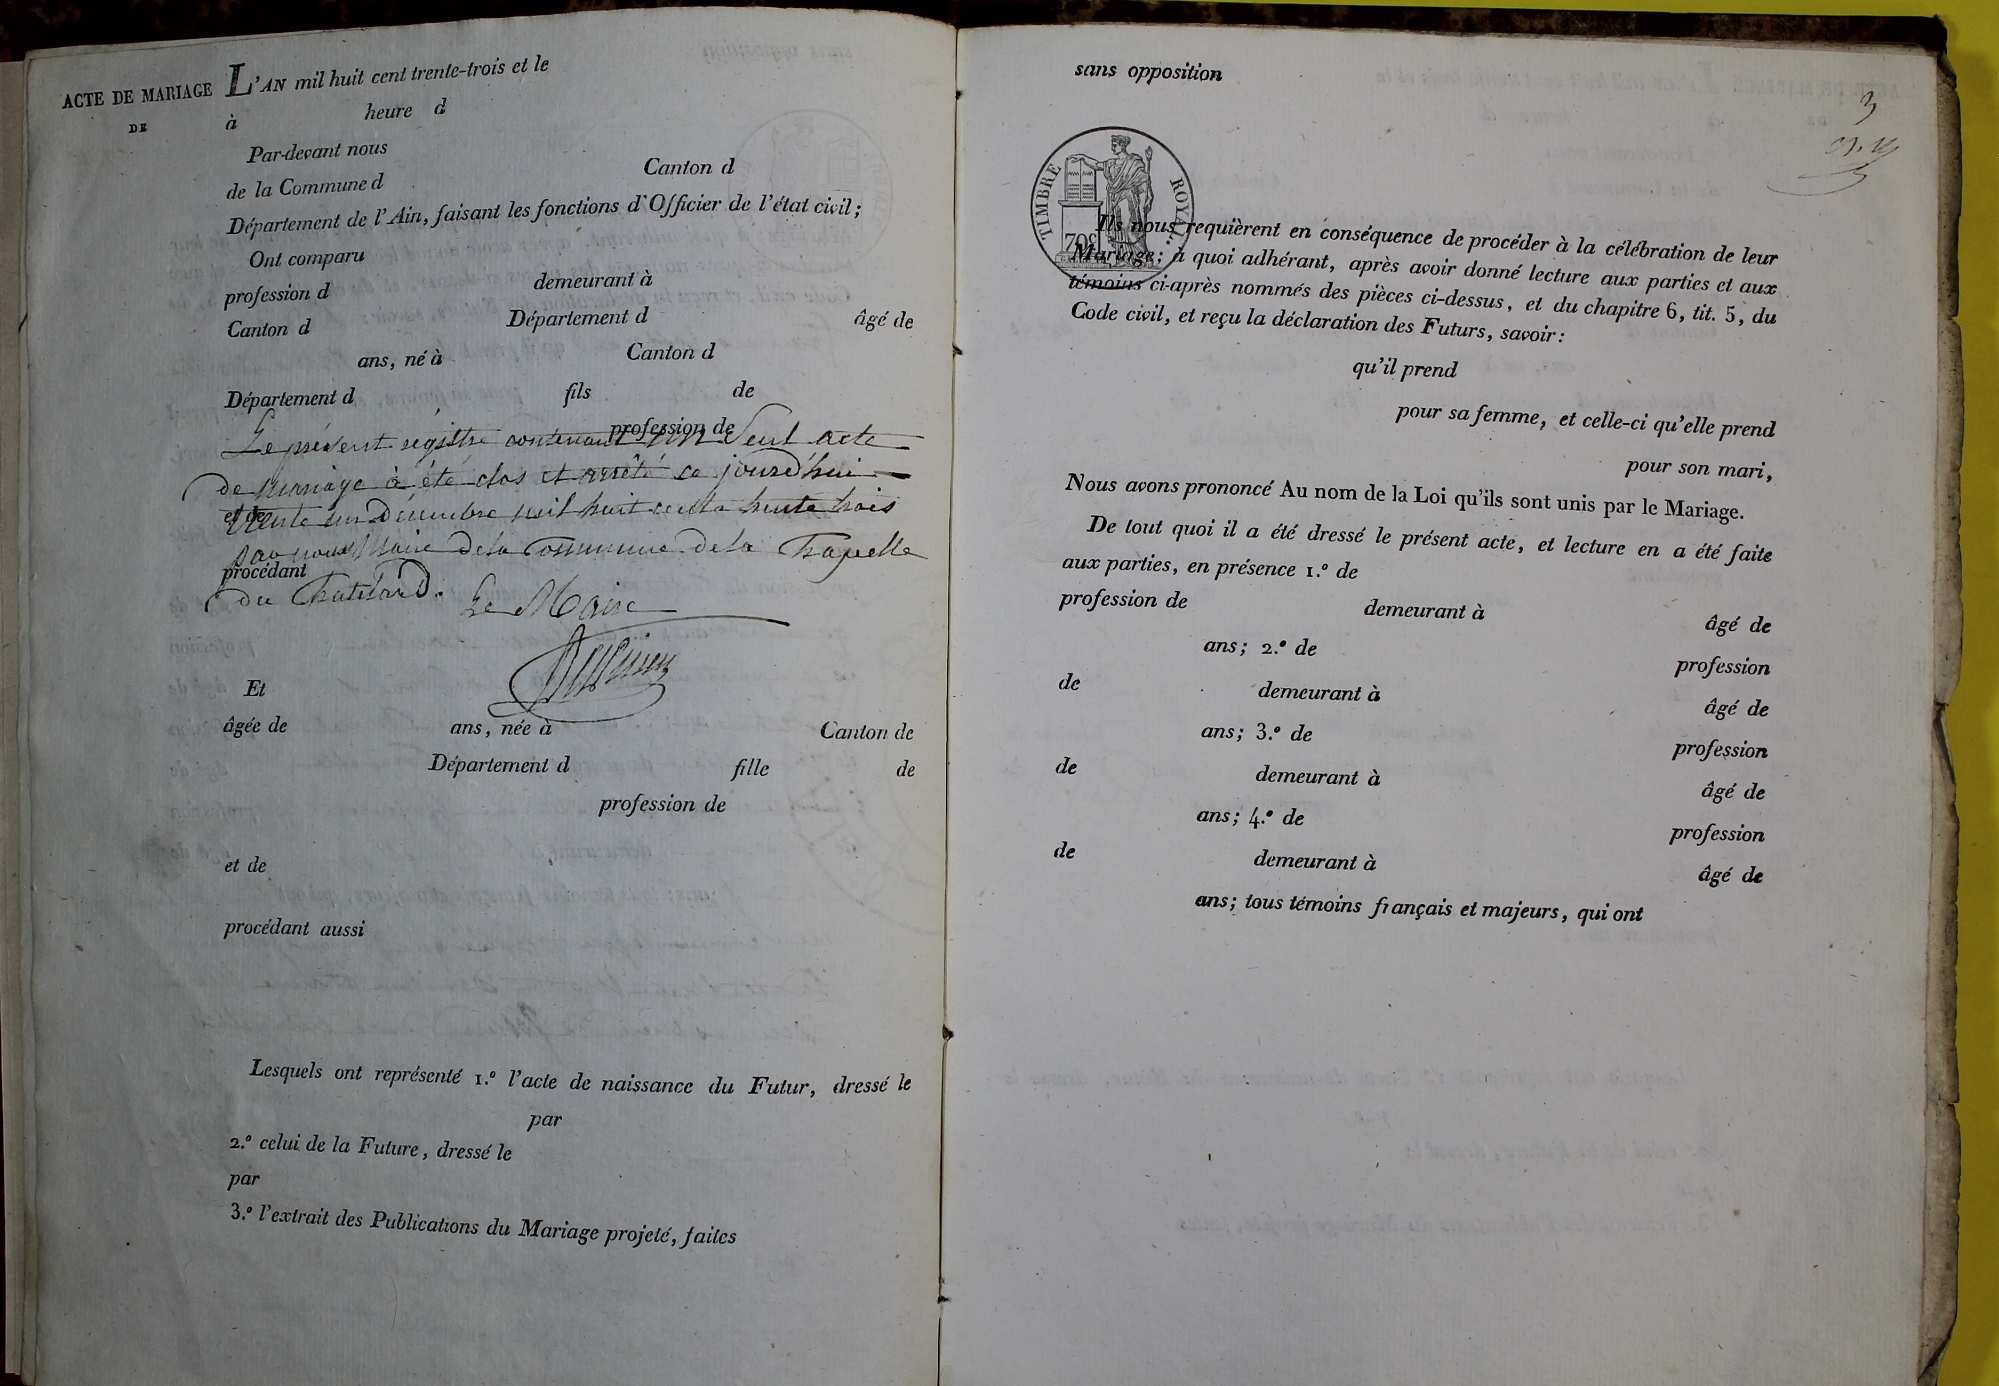 ACTE DE MARIAGE L'AN mil huit cent trente-trois et le
DE à heure d
Par-devant nous
de la Commune d Canton d
Département de l'Ain, faisant les fonctions d'Officier de l'état civil;
Ont comparu
profession d demeurant à
Canton d Département d âgé de
ans, né à Canton d
Département d fils de
profession de
Le présent registre contenant un Seul acte
de mariage à été clos et arrêté ce jourd'hui
et de
trente un Décembre mil huit cent trente trois
par nous Maire de la Commune de la Chapelle
procédant
du Chatelard. Le Maire
Et
âgée de ans, née à Canton de
Département d fille de
profession de
et de
procédant aussi
Lesquels ont représenté 1.º l'acte de naissance du Futur, dressé le
par
2.º celui de la Future, dressé le
par
3.º l'extrait des Publications du Mariage projeté, faites
sans opposition
3
TIMBRE ROYAL.
70c
Ils nous requièrent en conséquence de procéder à la célébration de leur
Mariage; à quoi adhérant, après avoir donné lecture aux parties et aux
témoins ci-après nommés des pièces ci-dessus, et du chapitre 6, tit. 5, du
Code civil, et reçu la déclaration des Futurs, savoir:
qu'il prend
pour sa femme, et celle-ci qu'elle prend
pour son mari,
Nous avons prononcé Au nom de la Loi qu'ils sont unis par le Mariage.
De tout quoi il a été dressé le présent acte, et lecture en a été faite
aux parties, en présence 1.º de
profession de demeurant à âgé de
ans; 2.º de profession
de demeurant à âgé de
ans; 3.º de profession
de demeurant à âgé de
ans; 4.º de profession
de demeurant à âgé de
ans; tous témoins français et majeurs, qui ont